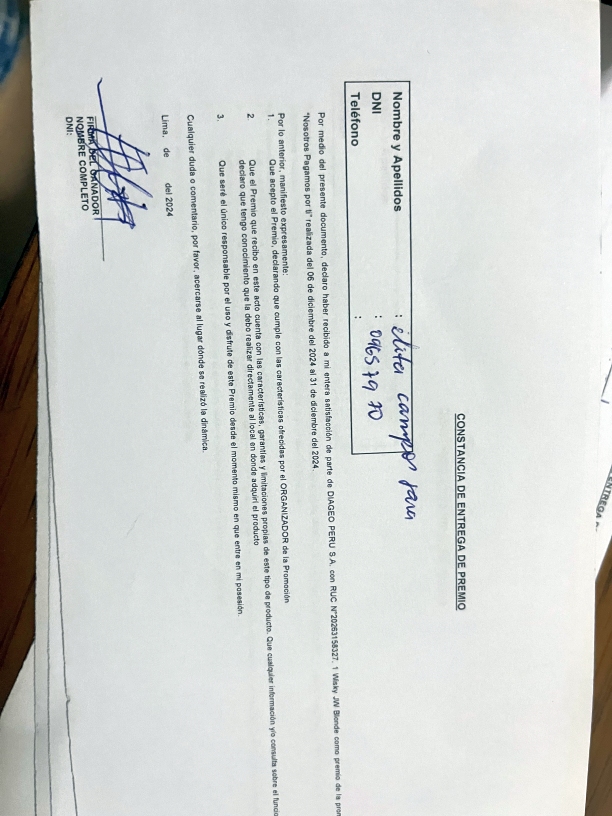 CONSTANCIA DE ENTREGA DE PREMIO
Nombre y Apellidos : campos
DNI : 0965 79 70
Teléfono :
Por medio del presente documento, declaro haber recibido a mi entera satisfacción de parte de DIAGEO PERU S.A. con RUC N°20263158327, 1 Wisky JW Blonde como premio de la
"Nosotros Pagamos por ti" realizada del 06 de diciembre del 2024 al 31 de diciembre del 2024.
Por lo anterior, manifiesto expresamente:
1. Que acepto el Premio, declarando que cumple con las características ofrecidas por el ORGANIZADOR de la Promoción
2 Que el Premio que recibo en este acto cuenta con las características, garantías y limitaciones propias de este tipo de producto. Que cualquier información y/o consulta sobre el
declaro que tengo conocimiento que la debo realizar directamente al local en donde adquirí el producto
3. Que seré el único responsable por el uso y disfrute de este Premio desde el momento mismo en que entre en mi posesión.
Cualquier duda o comentario, por favor, acercarse al lugar dónde se realizó la dinámica.
Lima, de del 2024
FIRMA DEL GANADOR
NOMBRE COMPLETO
DNI: